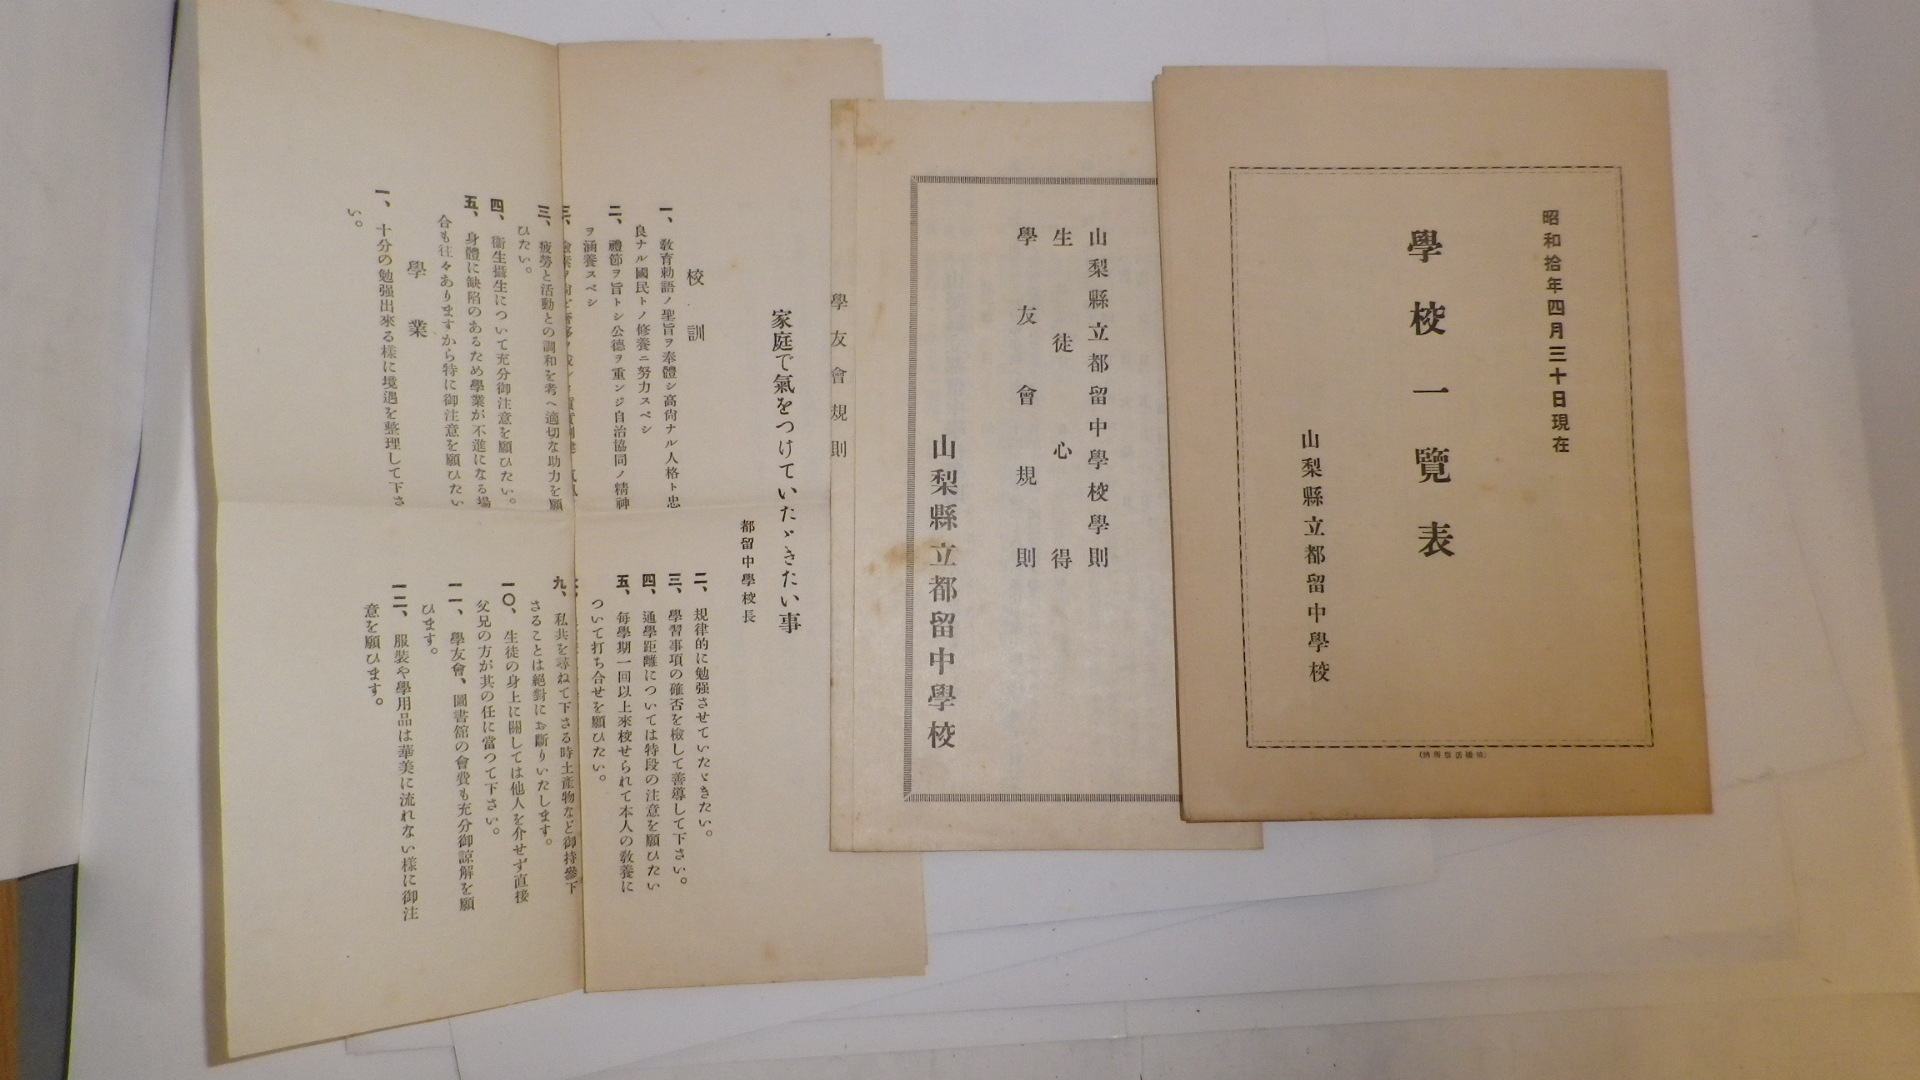 昭和拾年四月三十日現在
學校一覽表
山梨縣立都留中學校
山梨縣立都留中學校學則
生徒心得
學友會規則
山梨縣立都留中學校
學友會規則
家庭で氣をつけていたゞきたい事
都留中學校長
校訓
一、敎育勅語ノ聖旨ヲ奉體シ高尙ナル人格ト忠
良ナル國民トノ修養ニ努力スベシ
二、禮節ヲ旨トシ公德ヲ重ンジ自治協同ノ精神
ヲ涵養スベシ
三、
三、疲勞と活動との調和を考へ適切な助力を願
ひたい。
四、衞生攝生について充分御注意を願ひたい。
五、身體に缺陷のあるため學業が不進になる場
合も往々ありますから特に御注意を願ひたい
學業
一、十分の勉强出來る樣に境遇を整理して下さ
い。
二、規律的に勉强させていたゞきたい。
三、學習事項の確否を檢して善導して下さい。
四、通學距離については特段の注意を願ひたい
五、每學期一回以上來校せられて本人の敎養に
ついて打ち合せを願ひたい。
九、私共を尋ねて下さる時土產物など御持參下
さることは絕對にお斷りいたします。
一〇、生徒の身上に關しては他人を介せず直接
父兄の方が其の任に當つて下さい。
一一、學友會、圖書館の會費も充分御諒解を願
ひます。
一二、服裝や學用品は華美に流れない樣に御注
意を願ひます。